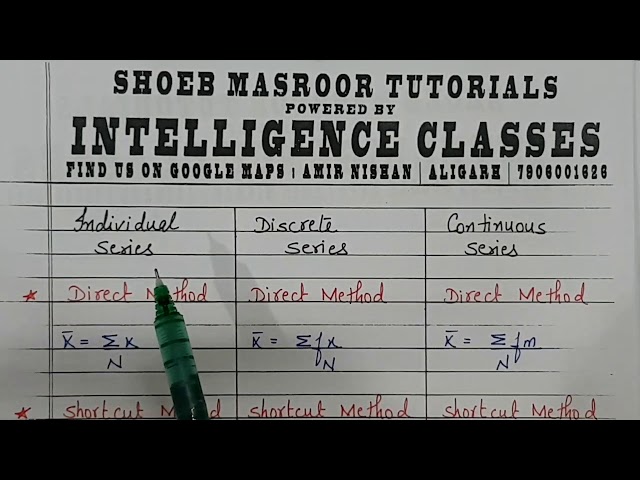 SHOEB MASROOR TUTORIALS
POWERED BY
INTELLIGENCE CLASSES
FIND US ON GOOGLE MAPS | AMIR NISHAN | ALIGARH | 7906001626
Individual Series
Discrete Series
Continuous Series
* Direct Method
Direct Method
Direct Method
X̄ = Σx / N
X̄ = Σfx / N
X̄ = Σfm / N
* Shortcut Method
Shortcut Method
Shortcut Method